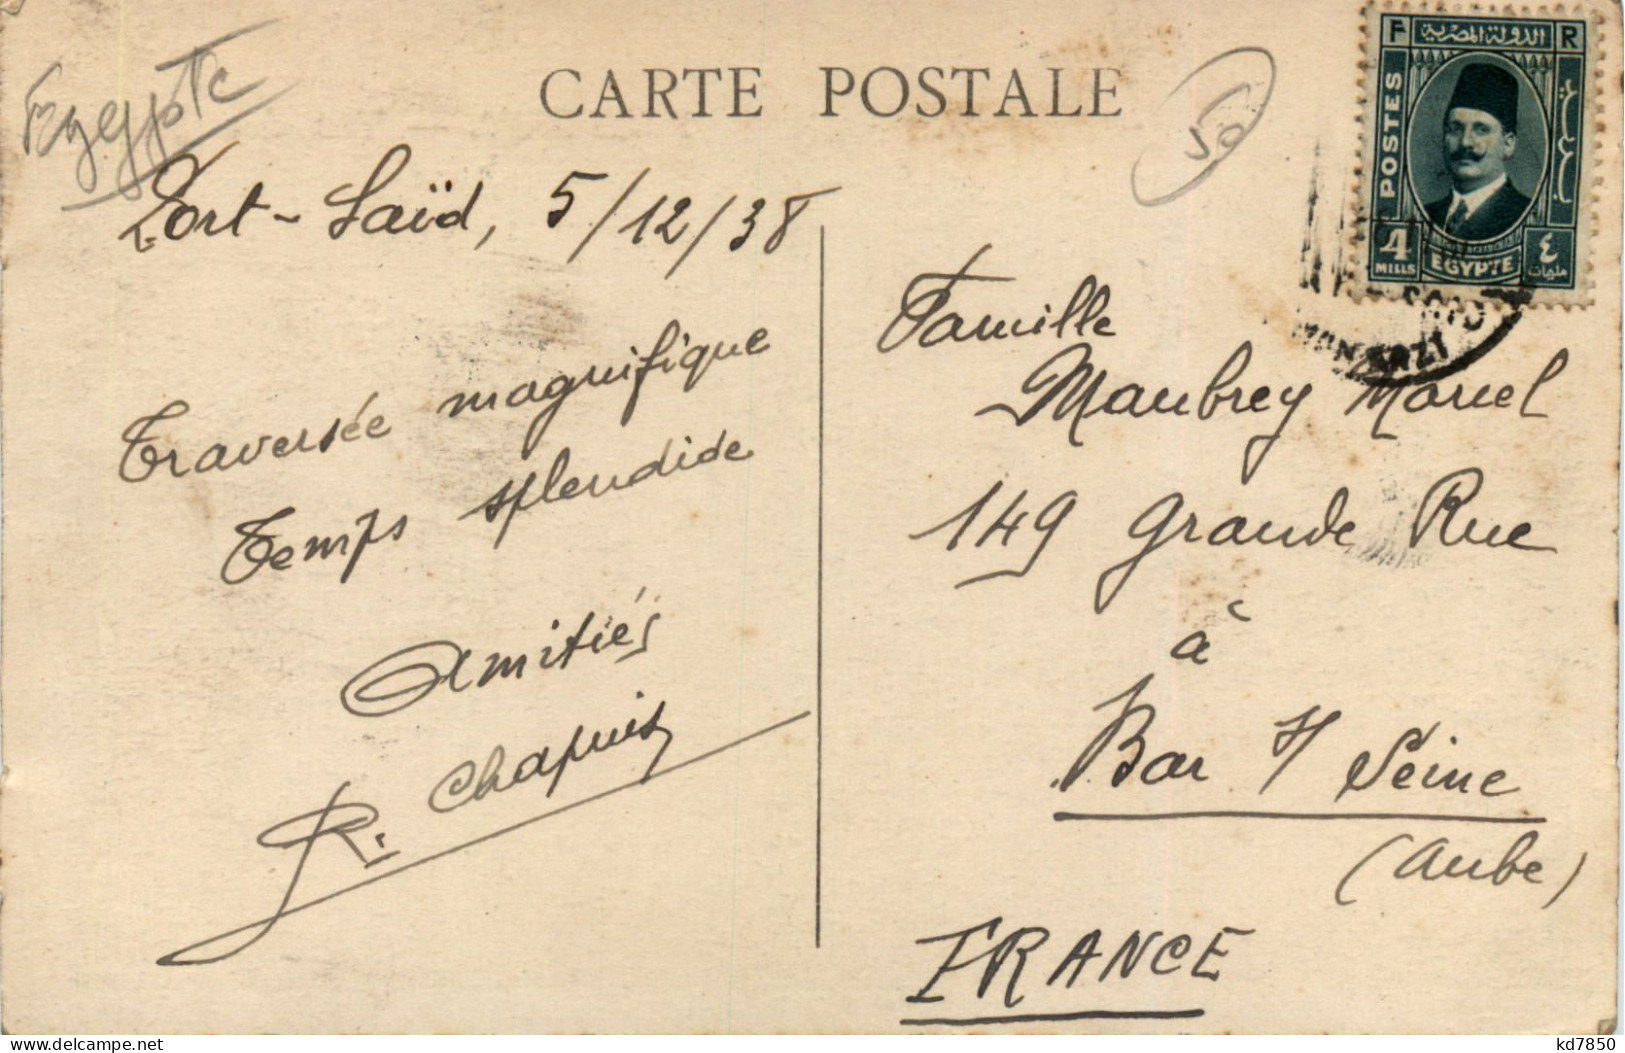 Egypte
CARTE POSTALE
50
Port-Saïd, 5/12/38
Traversée magnifique
Temps splendide
Amitiés
R. Chapuis
Famille
Maubrey Marcel
149 Grande Rue
à
Bar s/ Seine
(Aube)
FRANCE
F الدولة المصرية R
POSTES
بريد
4 MILLS
EGYPTE
٤ مليمات
delcampe.net
kd7850